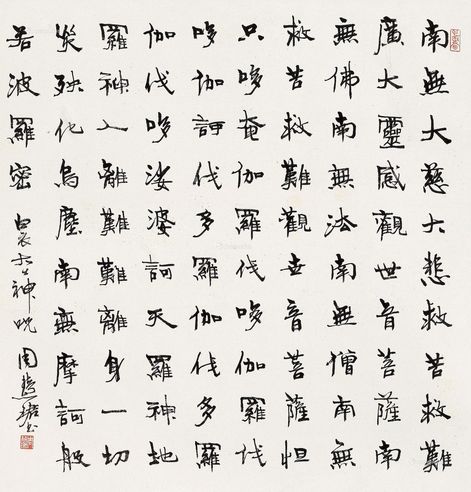 南無大慈大悲救苦救難
廣大靈感觀世音菩薩南
無佛南無法南無僧南無
救苦救難觀世音菩薩怛
只哆唵伽羅伐哆伽羅伐
哆伽訶伐多羅伽伐多羅
伽伐哆娑婆訶天羅神地
羅神人離難難離身一切
災殃化為塵南無摩訶般
若波羅密 白衣大士神咒 周慧珺